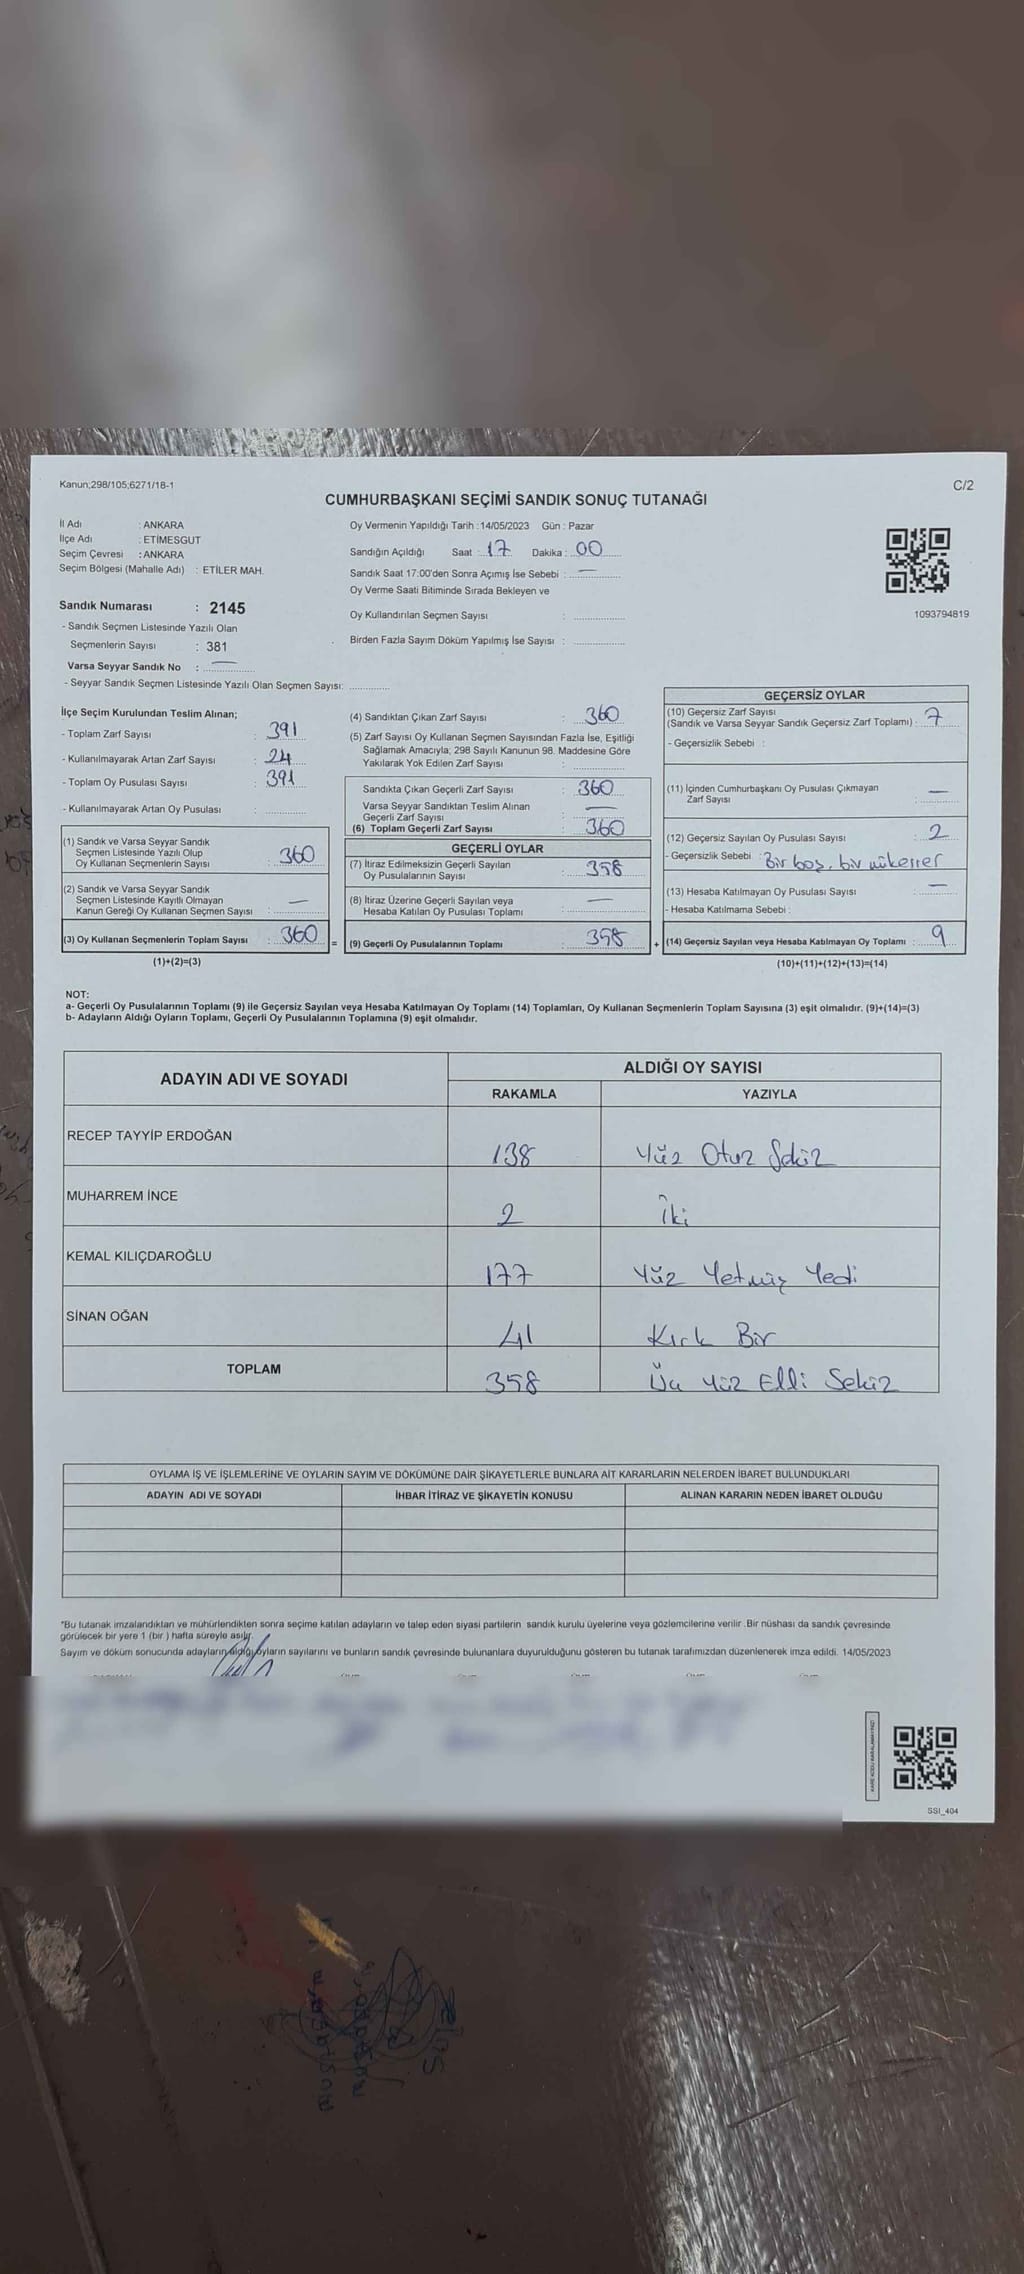 Kanun;298/105;6271/18-1
C/2
CUMHURBAŞKANI SEÇİMİ SANDIK SONUÇ TUTANAĞI
İl Adı : ANKARA
İlçe Adı : ETİMESGUT
Seçim Çevresi : ANKARA
Seçim Bölgesi (Mahalle Adı) : ETİLER MAH.
Sandık Numarası : 2145
- Sandık Seçmen Listesinde Yazılı Olan
Seçmenlerin Sayısı : 381
Varsa Seyyar Sandık No : —
- Seyyar Sandık Seçmen Listesinde Yazılı Olan Seçmen Sayısı: ............
Oy Vermenin Yapıldığı Tarih : 14/05/2023 Gün : Pazar
Sandığın Açıldığı Saat : 17 Dakika : 00
Sandık Saat 17:00'den Sonra Açımış İse Sebebi : —
Oy Verme Saati Bitiminde Sırada Bekleyen ve
Oy Kullandırılan Seçmen Sayısı : ............
Birden Fazla Sayım Döküm Yapılmış İse Sayısı : ............
1093794819
İlçe Seçim Kurulundan Teslim Alınan;
- Toplam Zarf Sayısı : 391
- Kullanılmayarak Artan Zarf Sayısı : 24
- Toplam Oy Pusulası Sayısı : 391
- Kullanılmayarak Artan Oy Pusulası : ............
(1) Sandık ve Varsa Seyyar Sandık
Seçmen Listesinde Yazılı Olup
Oy Kullanan Seçmenlerin Sayısı : 360
(2) Sandık ve Varsa Seyyar Sandık
Seçmen Listesinde Kayıtlı Olmayan
Kanun Gereği Oy Kullanan Seçmen Sayısı : —
(3) Oy Kullanan Seçmenlerin Toplam Sayısı : 360
(1)+(2)=(3)
=
(4) Sandıktan Çıkan Zarf Sayısı : 360
(5) Zarf Sayısı Oy Kullanan Seçmen Sayısından Fazla İse, Eşitliği
Sağlamak Amacıyla; 298 Sayılı Kanunun 98. Maddesine Göre
Yakılarak Yok Edilen Zarf Sayısı : ............
Sandıkta Çıkan Geçerli Zarf Sayısı : 360
Varsa Seyyar Sandıktan Teslim Alınan
Geçerli Zarf Sayısı : —
(6) Toplam Geçerli Zarf Sayısı : 360
GEÇERLİ OYLAR
(7) İtiraz Edilmeksizin Geçerli Sayılan
Oy Pusulalarının Sayısı : 358
(8) İtiraz Üzerine Geçerli Sayılan veya
Hesaba Katılan Oy Pusulası Toplamı : —
(9) Geçerli Oy Pusulalarının Toplamı : 358
+
GEÇERSİZ OYLAR
(10) Geçersiz Zarf Sayısı
(Sandık ve Varsa Seyyar Sandık Geçersiz Zarf Toplamı) : 7
- Geçersizlik Sebebi :
(11) İçinden Cumhurbaşkanı Oy Pusulası Çıkmayan
Zarf Sayısı : —
(12) Geçersiz Sayılan Oy Pusulası Sayısı : 2
- Geçersizlik Sebebi : Bir boş, bir mükerrer
(13) Hesaba Katılmayan Oy Pusulası Sayısı : —
- Hesaba Katılmama Sebebi :
(14) Geçersiz Sayılan veya Hesaba Katılmayan Oy Toplamı : 9
(10)+(11)+(12)+(13)=(14)
NOT:
a- Geçerli Oy Pusulalarının Toplamı (9) ile Geçersiz Sayılan veya Hesaba Katılmayan Oy Toplamı (14) Toplamları, Oy Kullanan Seçmenlerin Toplam Sayısına (3) eşit olmalıdır. (9)+(14)=(3)
b- Adayların Aldığı Oyların Toplamı, Geçerli Oy Pusulalarının Toplamına (9) eşit olmalıdır.
ADAYIN ADI VE SOYADI
ALDIĞI OY SAYISI
RAKAMLA YAZIYLA
RECEP TAYYİP ERDOĞAN 138 Yüz Otuz Sekiz
MUHARREM İNCE 2 İki
KEMAL KILIÇDAROĞLU 177 Yüz Yetmiş Yedi
SİNAN OĞAN 41 Kırk Bir
TOPLAM 358 Üç Yüz Elli Sekiz
OYLAMA İŞ VE İŞLEMLERİNE VE OYLARIN SAYIM VE DÖKÜMÜNE DAİR ŞİKAYETLERLE BUNLARA AİT KARARLARIN NELERDEN İBARET BULUNDUKLARI
ADAYIN ADI VE SOYADI İHBAR İTİRAZ VE ŞİKAYETİN KONUSU ALINAN KARARIN NEDEN İBARET OLDUĞU
*Bu tutanak imzalandıktan ve mühürlendikten sonra seçime katılan adayların ve talep eden siyasi partilerin sandık kurulu üyelerine veya gözlemcilerine verilir .Bir nüshası da sandık çevresinde
görülecek bir yere 1 (bir ) hafta süreyle asılır.
Sayım ve döküm sonucunda adayların aldığı oyların sayılarını ve bunların sandık çevresinde bulunanlara duyurulduğunu gösteren bu tutanak tarafımızdan düzenlenerek imza edildi. 14/05/2023
KARE KODU KARALAMAYINIZ!
SSI_404